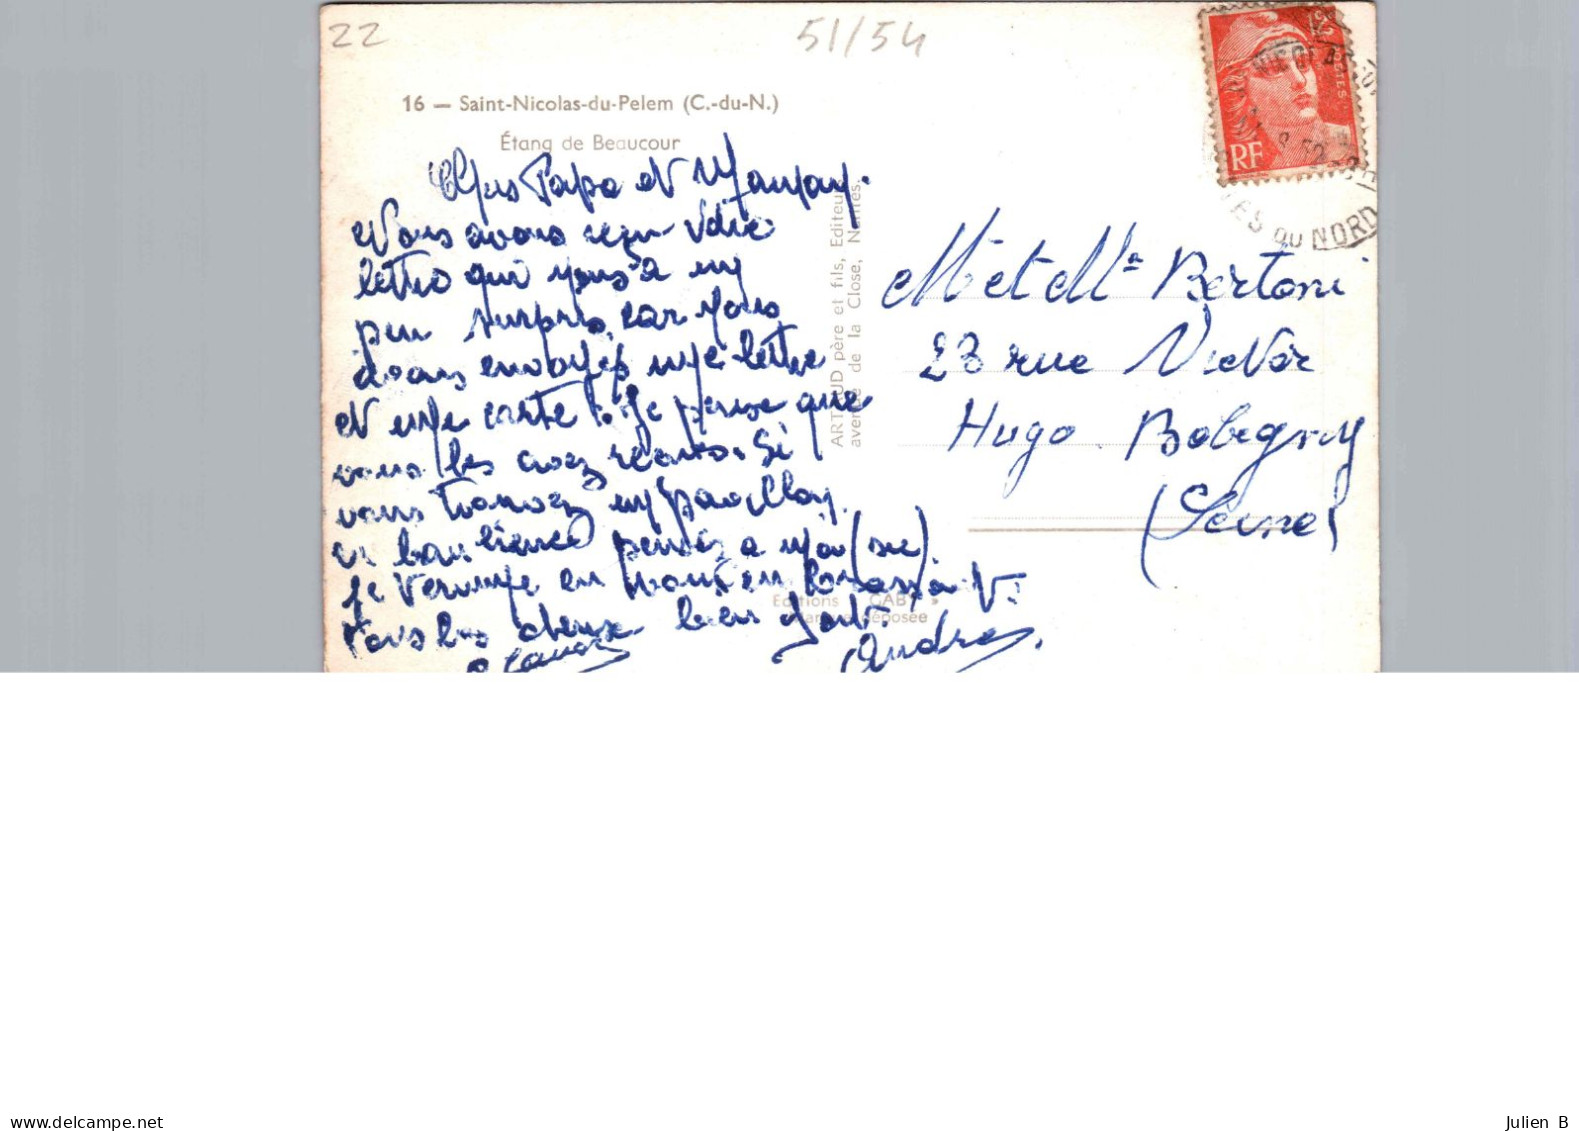 22
51/54
16 — Saint-Nicolas-du-Pelem (C.-du-N.)
Étang de Beaucour
Papa et Maman.
Nous avons reçu votre
lettre qui nous a un
peu surpris, car nous
avons envoyés une lettre
et une carte. Je pense que
vous les avez reçues. Si
vous trouvez un pavillon
en banlieue pensez a moi (sic)
Je termine en vous embrassant
tous les deux bien fort.
Andre
ARTAUD père et fils, Editeurs
avenue de la Close, Nantes.
Editions GABY
Marque déposée
RF
POSTES
DU NORD
Mr et Me Bertoni
23 rue Victor
Hugo Bobigny
(Seine)
delcampe.net
Julien B